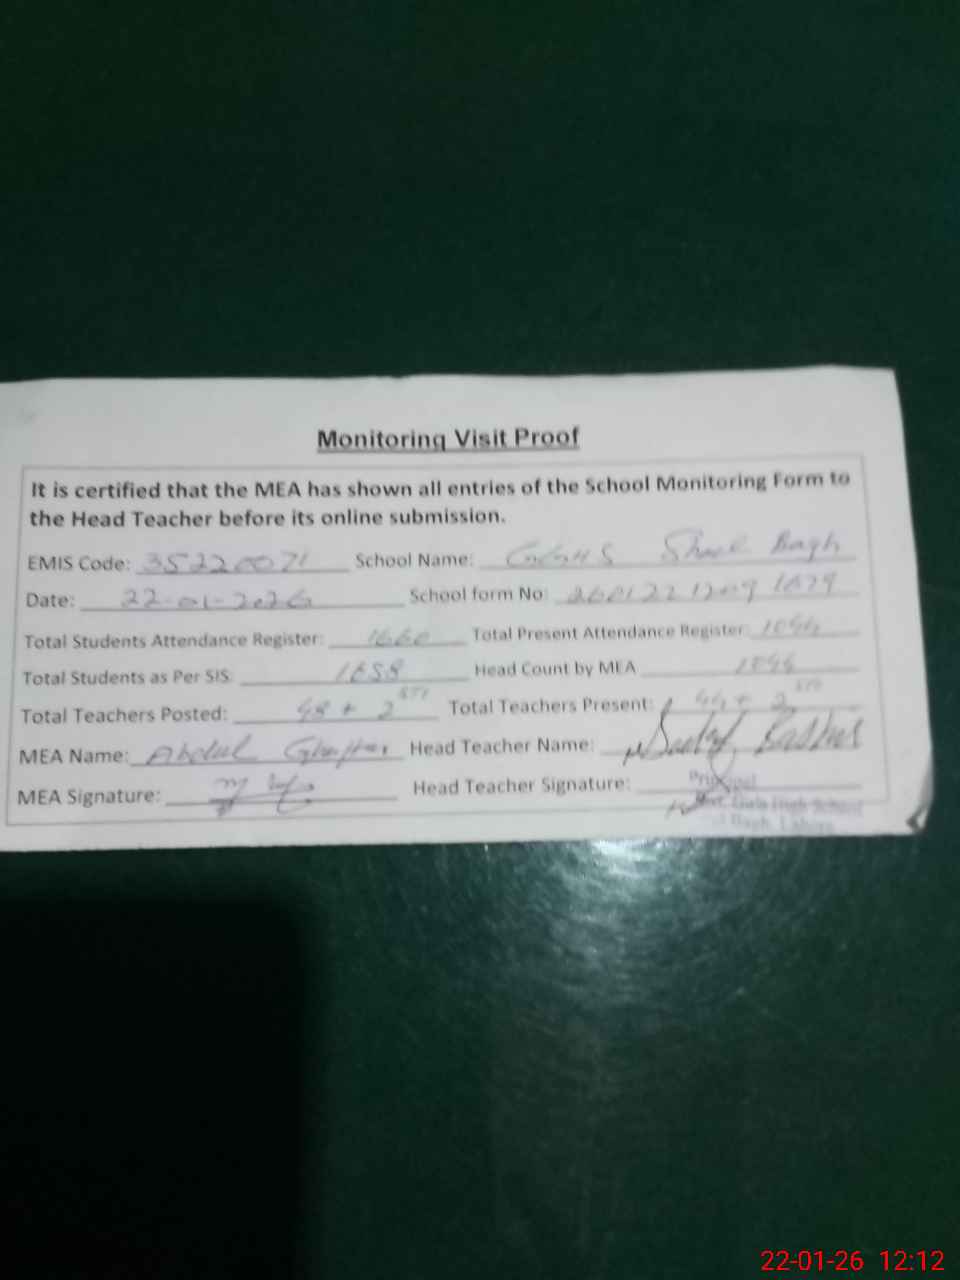 Monitoring Visit Proof
It is certified that the MEA has shown all entries of the School Monitoring Form to
the Head Teacher before its online submission.
EMIS Code: 35220071 School Name: GGHS Bagh
Date: 22-01-2026 School form No:
Total Students Attendance Register: 1660 Total Present Attendance Register:
Total Students as Per SIS: 1658 Head Count by MEA
Total Teachers Posted: 48 + 2 Total Teachers Present: 44 + 2
MEA Name: Abdul Ghaffar Head Teacher Name:
MEA Signature: Head Teacher Signature:
Principal
Govt. Girls High School
Bagh, Lahore
22-01-26 12:12